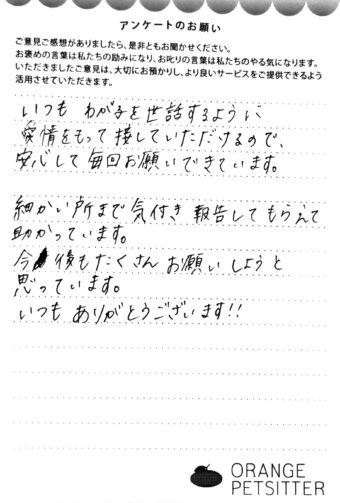 アンケートのお願い
ご意見ご感想がありましたら、是非ともお聞かせください。
お褒めの言葉は私たちの励みになり、お叱りの言葉は私たちのやる気になります。
いただきましたご意見は、大切にお預かりし、より良いサービスをご提供できるよう
活用させていただきます。
いつも わが子を世話するように
愛情をもって接していただけるので、
安心して毎回お願いできています。
細かい所まで気付き 報告してもらえて
助かっています。
今後もたくさん お願いしようと
思っています。
いつも ありがとうございます!!
ORANGE
PETSITTER